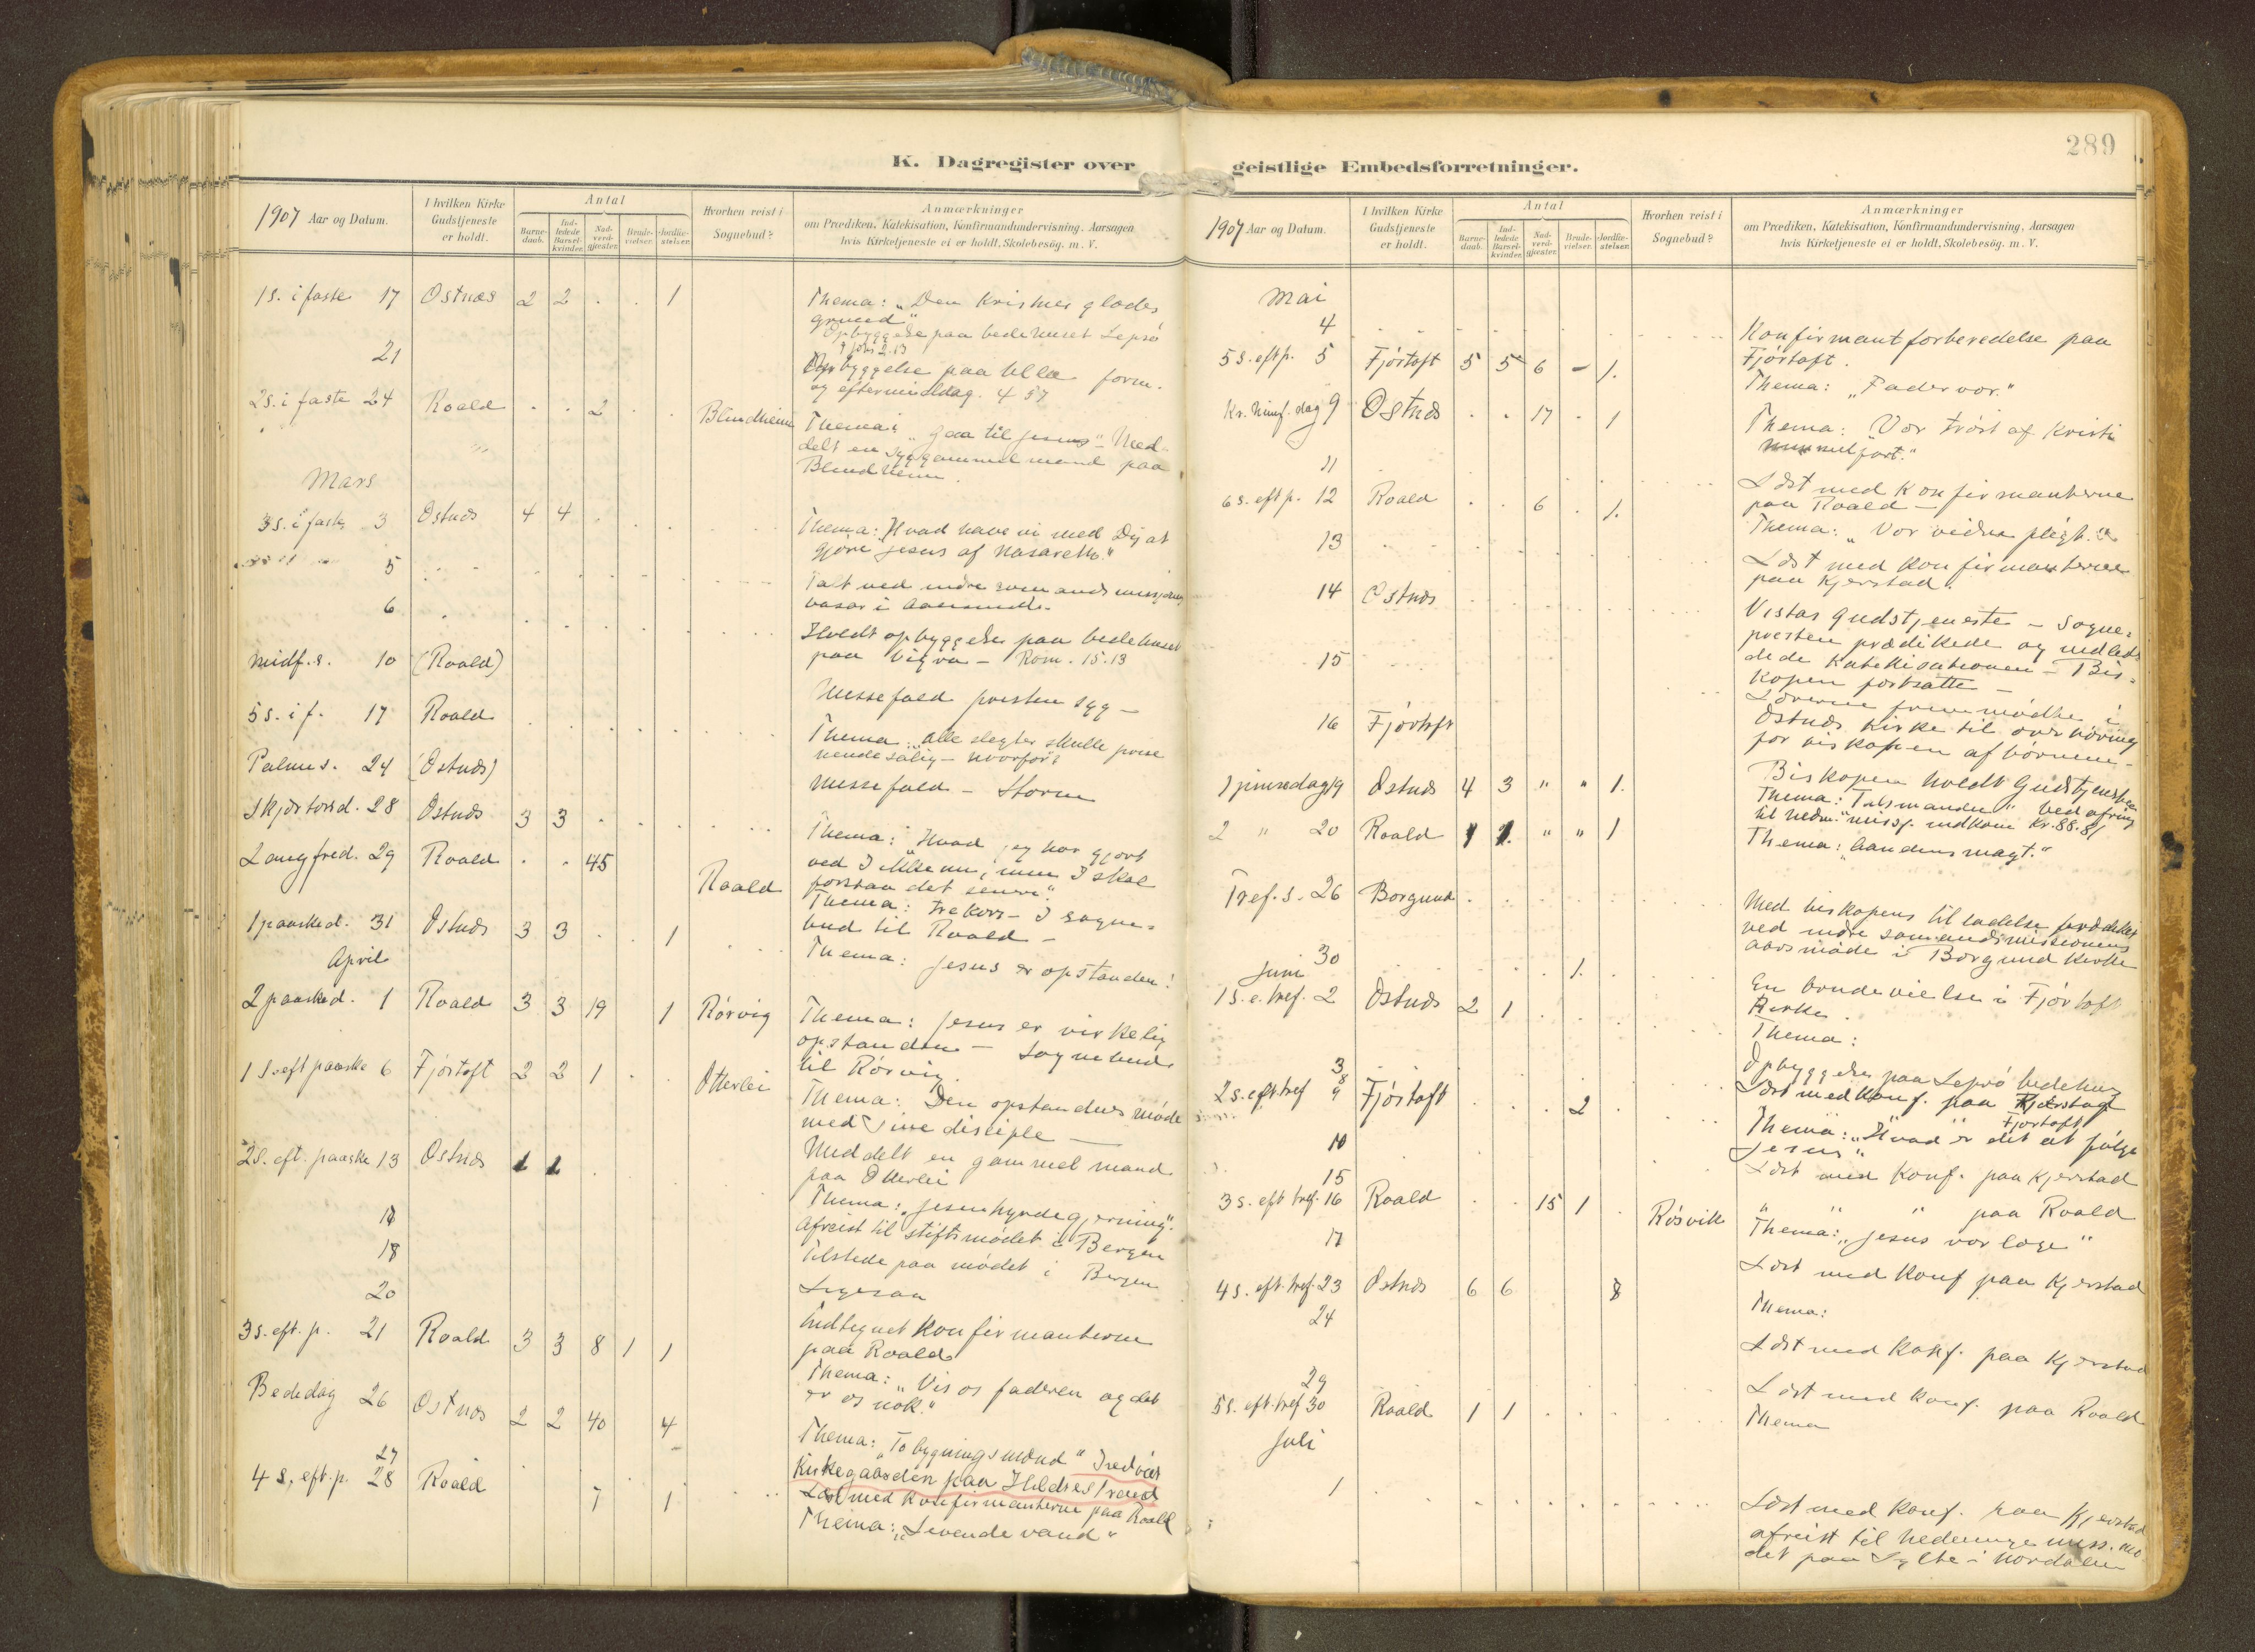 289
K. Dagregister over
1907 Aar og Datum.
I hvilken Kirke Gudstjeneste er holdt.
Antal
Barnedaab.
Indledede Barselkvinder.
Nadverdgjester.
Brudevielser.
Jordfæstelser.
Hvorhen reist i Sognebud?
Anmærkninger
om Prædiken, Katekisation, Konfirmandundervisning, Aarsagen
hvis Kirketjeneste ei er holdt, Skolebesög. m. V.
1 s. i faste 17 Ostnæs 2 2 . . 1 Thema: "Den Kristnes glædes
grund"
Opbyggelse paa bedehuset Lepsö
21 Opbyggelse paa Ulla form.
og eftermiddag.
2 s. i faste 24 Roald . . 2 . . Blindheim Thema: "Gaa til Jesus" - Med-
delt en syg gammel mand paa
Blindheim.
Mars
3 s. i faste 3 Ostnæs 4 4 . Thema: "Hvad have vi med Dig at
gjöre Jesus af Nasareth."
5 Talt ved indre sömandsmissions
basar i Aalesund.
6 Holdt opbyggelse paa bedehuset
paa Vigra - Rom. 15.13
Midf. s. 10 (Roald) Messefald presten syg -
5 s. i f. 17 Roald Thema "alle slegter skulle prise
hende salig - hvorfor?
Palmes. 24 (Ostnæs) Messefald - Storm
Skjærtorsd. 28 Ostnæs 3 3 Thema: "Hvad jeg har gjort
ved I ikke nu, men I skal
forstaa det senere."
Langfred. 29 Roald . . 45 Roald Thema: trekors - I sogne-
bud til Roald -
1 paasked. 31 Ostnæs 3 3 . . 1 Thema: Jesus er opstanden!
April
2 paasked. 1 Roald 3 3 19 1 Rörvig Thema: Jesus er virkelig
opstanden - Sognebud
til Rörvig.
1 s. eft paaske 6 Fjörtoft 2 2 1 . . Otterlei Thema: Den opstandnes möde
med sine disciple -
Meddelt en gammel mand
paa Otterlei
2 s. eft. paaske 13 Ostnæs 1 1 Thema: "Jesu hyrdegjerning".
Afreist til stiftsmödet i Bergen
18 Tilstede paa mödet i Bergen
Ligesaa
20 Indtegnet Konfirmanterne
paa Roald
3 s. eft. p. 21 Roald 3 3 8 1 1 Thema: "Vis os faderen og det
er os nok."
Bededag 26 Ostnæs 2 2 40 4 Thema: "To bygningsmænd" Indviet
Kirkegaarden paa Hildrestrand
27 Læst med Konfirmanterne paa Roald
4 s. eft. p. 28 Roald 7 1 Thema: "Levende vand"
geistlige Embedsforretninger.
1907 Aar og Datum.
I hvilken Kirke Gudstjeneste er holdt.
Antal
Barnedaab.
Indledede Barselkvinder.
Nadverdgjester.
Brudevielser.
Jordfæstelser.
Hvorhen reist i Sognebud?
Anmærkninger
om Prædiken, Katekisation, Konfirmandundervisning, Aarsagen
hvis Kirketjeneste ei er holdt, Skolebesög. m. V.
Mai
4 Konfirmantforberedelse paa
Fjörtoft.
5 s. eft p. 5 Fjörtoft 5 5 6 - 1. Thema: "Fader vor."
Kr. himf. dag 9 Ostnæs . . 17 . 1 Thema: Vor tröst af Kristi
himmelfart."
11 Læst med Konfirmanterne
paa Roald -
6 s. eft p. 12 Roald . . 6 . 1. Thema: "Vor vidne pligt."
13 Læst med Konfirmanterne
paa Kjerstad.
14 Ostnæs Visitas Gudstjeneste - Sogne-
presten prædikede og indled-
dede Katekisationen - Bis-
kopen fortsatte -
15 Lærerne fremmödte i
Ostnæs Kirke til overhöring
for biskopen af börnene -
16 Fjörtoft Biskopen holdt Gudstjeneste
1 pinsedag 19 Ostnæs 4 3 " " 1. Thema: Talsmanden" Ved ofring
til hedn. miss. indkom Kr. 88.81
2 " 20 Roald 1 1. " " 1 Thema: "Aandens magt."
Tref. s. 26 Borgund Med biskopens tilladelse prædiket
ved indre sömandsmissionens
aarsmöde i Borgund Kirke
30 . 1. En brudevielse i Fjörtoft
Kirke.
Juni
1 s. e. tref. 2 Ostnæs 2 1 Thema:
3 Opbyggelse paa Lepsö bedehus
8 Læst med Konf. paa Kjerstad
Fjörtoft
2 s. eft tref 9 Fjörtoft 2 Thema: "Hvad er det at fölge
Jesus"
10 Læst med Konf. paa Kjerstad
15 " " " paa Roald
3 s. eft tref. 16 Roald 15 1 Rösvik Thema: "Jesus vor læge"
17 Læst med Konf paa Kjerstad
4 s. eft. tref. 23 Ostnæs 6 6 8 Thema:
24 Læst med Konf. paa Kjerstad
29 Læst med Konf. paa Roald
5 s. eft. tref 30 Roald 1 1 Thema
Juli
1 Læst med Konf. paa Kjerstad
afreist til hedninge miss. mö-
det paa Sylte i Nordalen